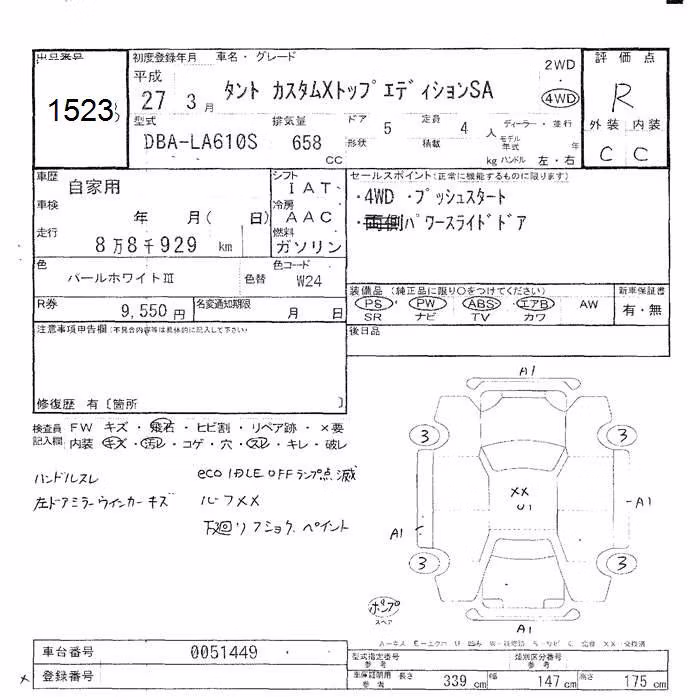 出品番号 初度登録年月 車名・グレード 2WD 評価点
1523 平成 27 3月 タント カスタムXトップエディションSA ・ 4WD R
型式 排気量 ドア 5 定員 4人 ディーラー・並行 外装 内装
DBA-LA610S 658 cc 形状 積載 kg モデル年式 年 ハンドル 左・右 C C
車歴 自家用 シフト IAT セールスポイント(正常に機能するものに限ります)
車検 年 月( 日) 冷房 AAC ・4WD ・プッシュスタート
走行 8万8千929 km 燃料 ガソリン ・両側パワースライドドア
色 パールホワイトIII 色替 色コード W24
装備品(純正品に限り○をつけてください) 新車保証書
R券 9,550円 名変通知期限 月 日 PS PW ABS エアB AW 有・無
SR ナビ TV カワ
注意事項申告欄(不具合内容等は具体的に記入して下さい) 後日品
修復歴 有〔箇所 〕
検査員 FW キズ・飛石・ヒビ割・リペア跡・×要
記入欄 内装 キズ・汚レ・コゲ・穴・スレ・キレ・破レ
ハンドルスレ eco IDLE OFFランプ点滅
左ドアミラーウインカーキズ ルーフXX
下廻りフショク、ペイント
A1
3 3
XX
U1
A1 -A1
3 3
ポンプ
スペア
A1
車台番号 0051449
型式指定番号 参考 類別区分番号 参考
登録番号
車庫証明用 参考 長さ 339 cm 幅 147 cm 高さ 175 cm
×